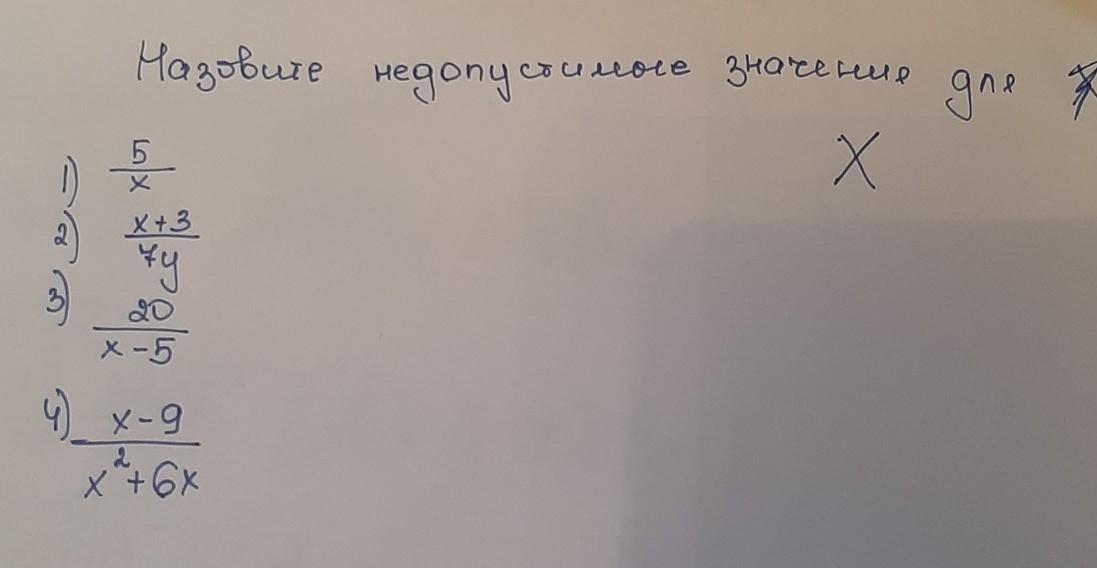 Назовите недопустимые значения для
X
1) 5/x
2) x+3/7y
3) 20/x-5
4) x-9/x²+6x